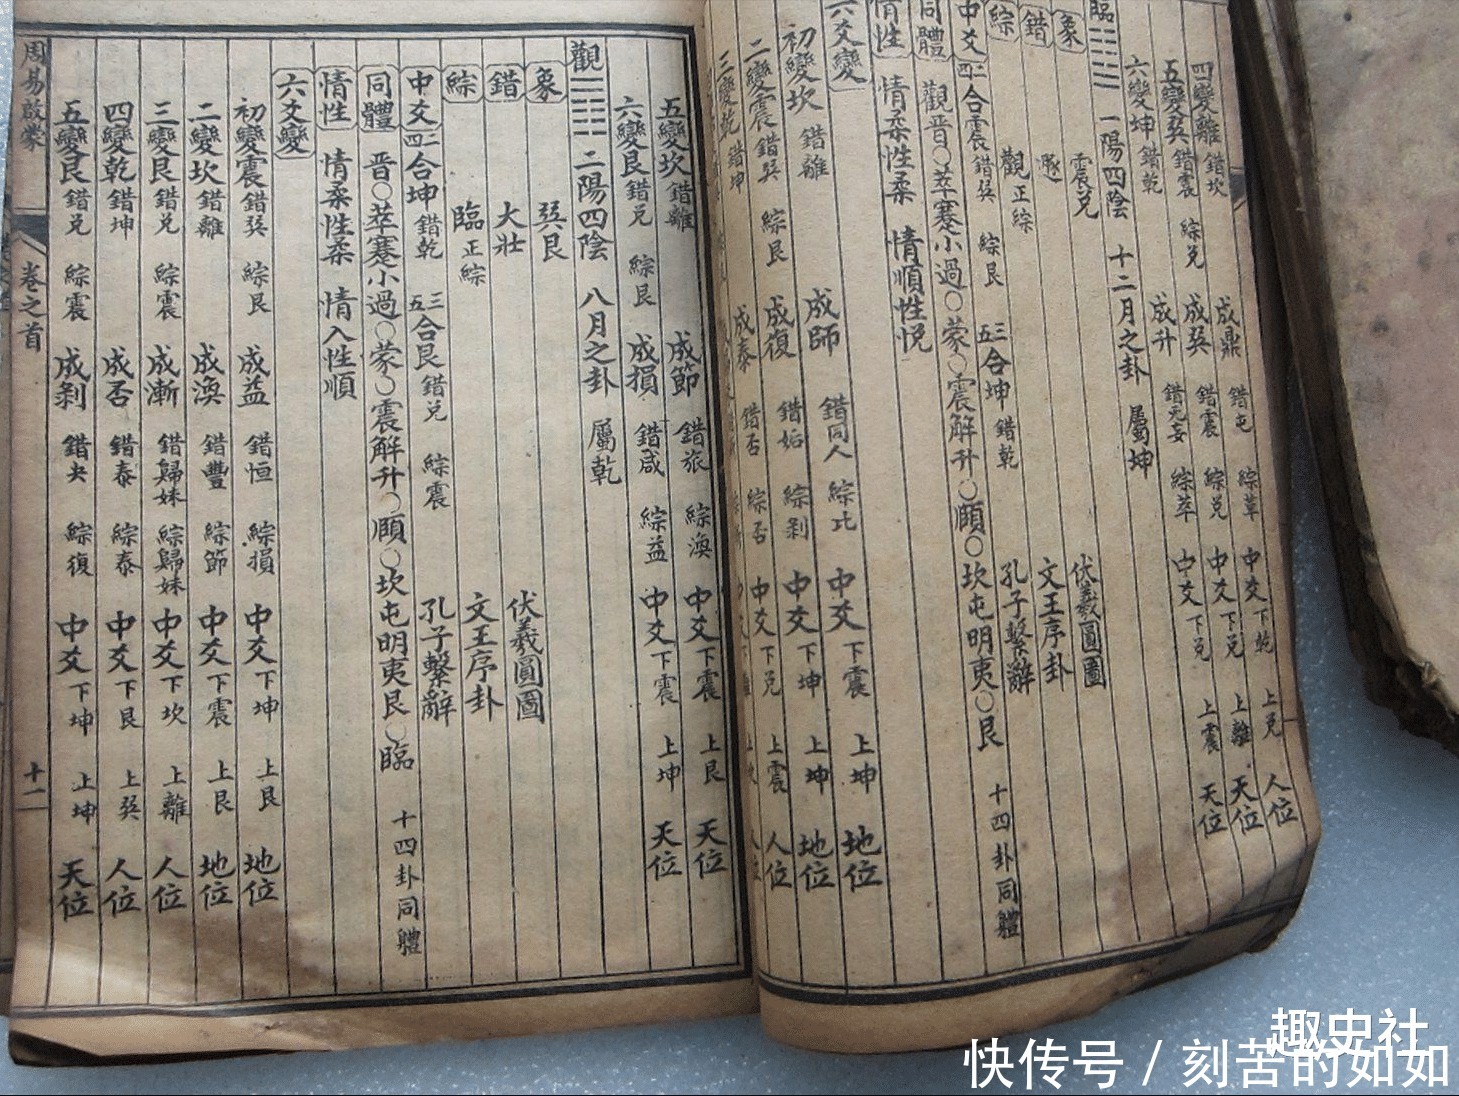 四變離 錯坎 成鼎 錯屯 綜革 中爻 下乾 上兌 人位
五變巽 錯震 綜兌 成巽 錯震 綜兌 中爻 下兌 上離 天位
六變坤 錯乾 成升 錯无妄 綜萃 中爻 下兌 上震 天位
臨 ䷒ 二陽四陰 十二月之卦 屬坤
象 震兌 伏羲圓圖
錯 遯 文王序卦
綜 觀 正綜 孔子繫辭
中爻 二四合震 錯巽 綜艮 三五合坤 錯乾
同體 觀晉○萃蹇小過○蒙○震解升○頤○坎屯明夷○艮 十四卦同體
情性 情柔性柔 情順性悅
六爻變
初變坎 錯離 成師 錯同人 綜比 中爻 下震 上坤 地位
二變震 錯巽 綜艮 成復 錯姤 綜剝 中爻 下坤 上坤 地位
三變乾 錯坤 成泰 錯否 綜否 中爻 下兌 上震 人位
五變坎 錯離 成節 錯旅 綜渙 中爻 下震 上艮 天位
六變艮 錯兌 綜艮 成損 錯咸 綜益 中爻 下震 上坤 天位
觀 ䷓ 二陽四陰 八月之卦 屬乾
象 巽艮 伏羲圓圖
錯 大壯 文王序卦
綜 臨 正綜 孔子繫辭
中爻 二四合坤 錯乾 三五合艮 錯兌 綜震
同體 晉○萃蹇小過○蒙○震解升○頤○坎屯明夷艮○臨 十四卦同體
情性 情柔性柔 情入性順
六爻變
初變震 錯巽 綜艮 成益 錯恒 綜損 中爻 下坤 上艮 地位
二變坎 錯離 成渙 錯豐 綜節 中爻 下震 上艮 地位
三變艮 錯兌 綜震 成漸 錯歸妹 綜歸妹 中爻 下坎 上離 人位
四變乾 錯坤 成否 錯泰 綜泰 中爻 下艮 上巽 人位
五變艮 錯兌 綜震 成剝 錯夬 綜復 中爻 下坤 上坤 天位
周易啟蒙 卷之首 十一
趣史社
快传号 / 刻苦的如如